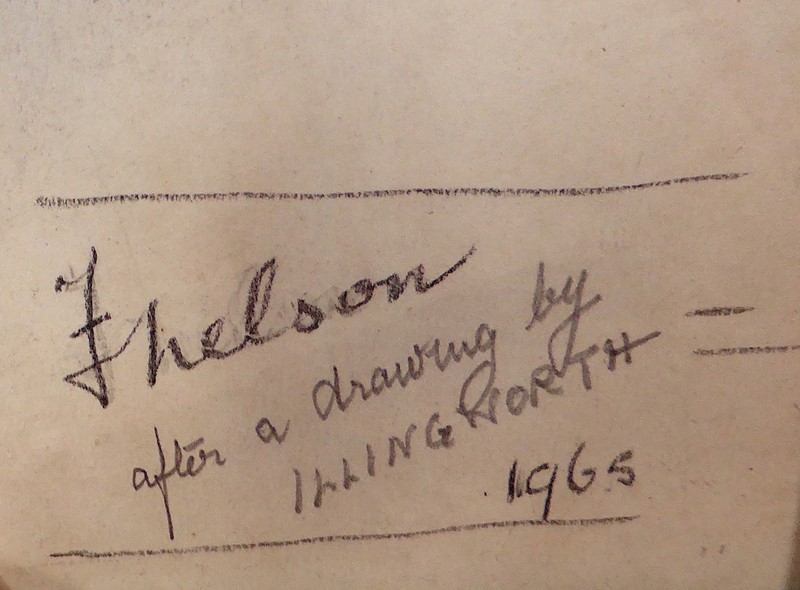 Fhelson
after a drawing by
ILLINGWORTH
1965